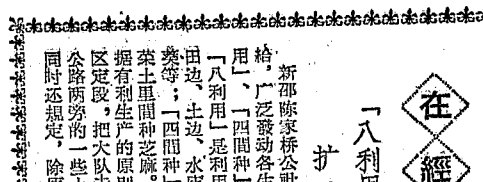 在經
「八利用
扩
新邵陈家桥公
給，广泛發动各生
用」、「四間种
「八利用」是利用
田边、土边、水
葵等；「四間种
菜土里間种芝麻。
据有利生产的原則
区定段，把大队
公路两旁的一些
同时还規定，除